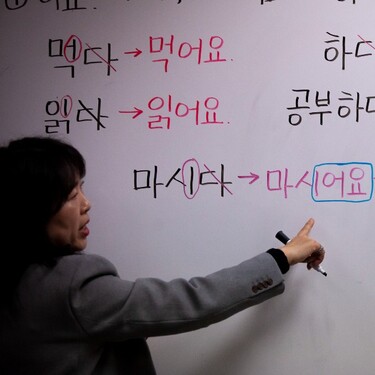 어요.
먹다 → 먹어요. 하다
읽다 → 읽어요. 공부하다
마시다 → 마시어요